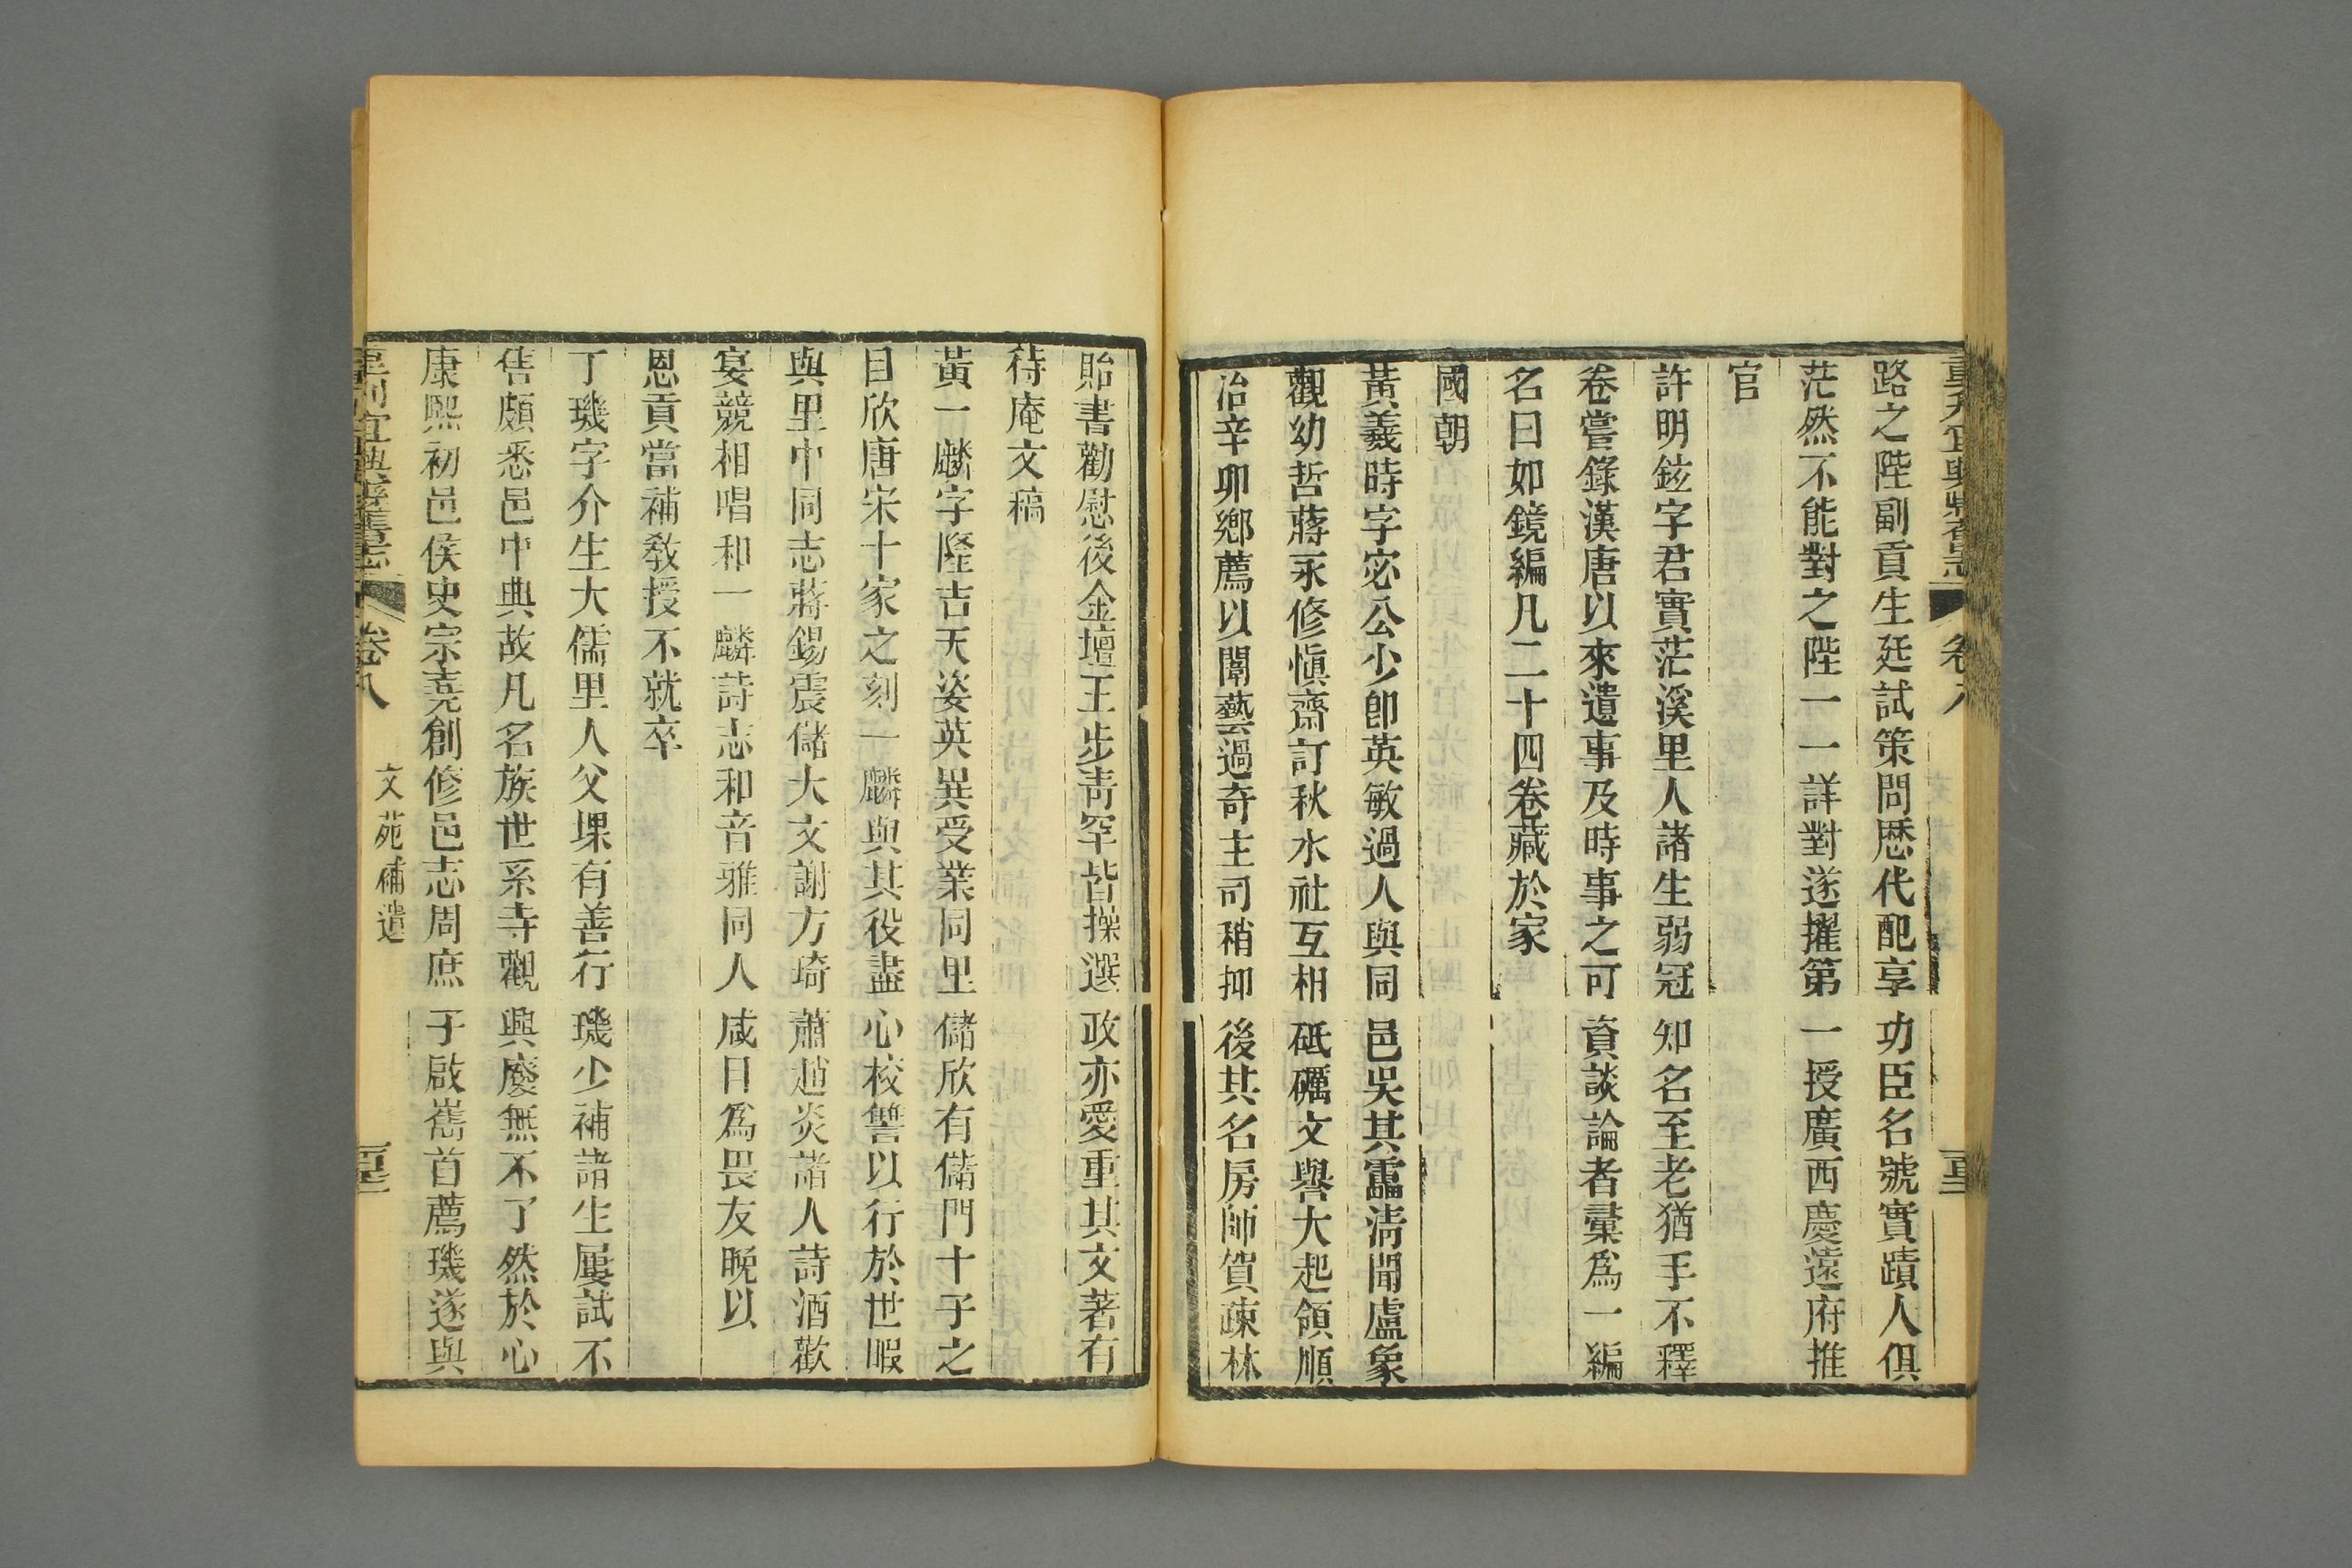 路之陛副貢生廷試策問歷代配享功臣名號實蹟人俱
茫然不能對之陛一一詳對遂擢第一授廣西慶遠府推
官
許明鉉字君實茫溪里人諸生弱冠知名至老猶手不釋
卷嘗錄漢唐以來遺事及時事之可資談論者彙爲一編
名曰如鏡編凡二十四卷藏於家
國朝
黃羲時字宓公少卽英敏過人與同邑吳其靁淸聞盧象
觀幼哲蔣永修愼齋訂秋水社互相砥礪文譽大起領順
治辛卯鄉薦以闈藝過奇主司稍抑後其名房師貿疎林
貽書勸慰後金壇王步靑罕皆操選政亦愛重其文著有
待庵文稿
黃一麟字隆吉天姿英異受業同里儲欣有儲門十子之
目欣唐宋十家之刻一麟與其役盡心校讐以行於世暇
與里中同志蔣錫震儲大文謝方琦蕭趙炎諸人詩酒歡
宴競相唱和一麟詩志和音雅同人咸目爲畏友晚以
恩貢當補敎授不就卒
丁璣字介生大儒里人父堁有善行璣少補諸生屢試不
售頗悉邑中典故凡名族世系寺觀興廢無不了然於心
康熙初邑侯史宗堯創修邑志周庶子啟嶲首薦璣遂與
重刊宜興縣舊志 卷八 文苑補遺